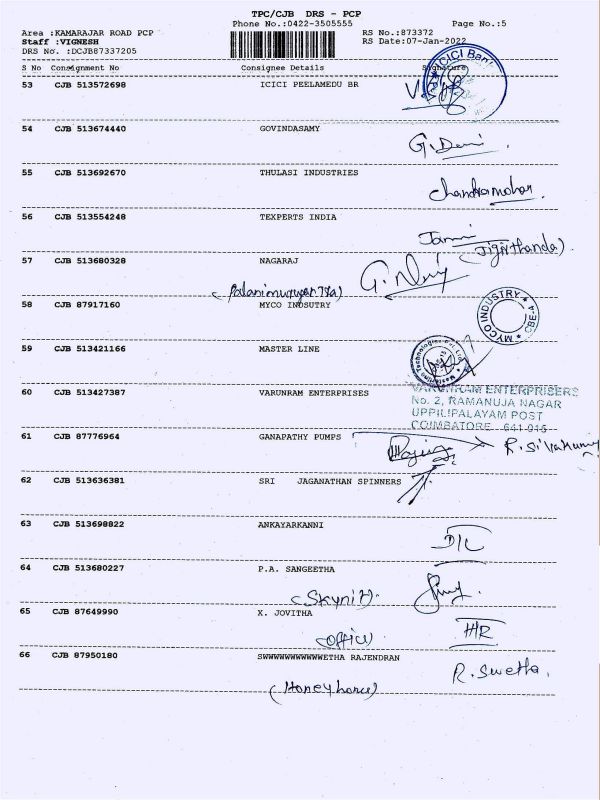 TPC/CJB DRS - PCP
Phone No.:0422-3505555
Page No.:5
Area :KAMARAJAR ROAD PCP
RS No.:873372
Staff :VIGNESH
RS Date:07-Jan-2022
DRS No. :DCJB87337205
S No Consignment No Consignee Details Signature
53 CJB 513572698 ICICI PEELAMEDU BR
ICICI Bank
54 CJB 513674440 GOVINDASAMY
G. Devi
55 CJB 513692670 THULASI INDUSTRIES
Chandramohan.
56 CJB 513554248 TEXPERTS INDIA
(Jigirthanda)
57 CJB 513680328 NAGARAJ
58 CJB 87917160 MYCO INDSUTRY
MYCO INDUSTRY ★ CBE-4 ★
59 CJB 513421166 MASTER LINE
60 CJB 513427387 VARUNRAM ENTERPRISES
VARUNRAM ENTERPRISERS
No. 2, RAMANUJA NAGAR
UPPILIPALAYAM POST
COIMBATORE 641 015
61 CJB 87776964 GANAPATHY PUMPS
R. Sivakumar
62 CJB 513636381 SRI JAGANATHAN SPINNERS
63 CJB 513698822 ANKAYARKANNI
D/L
64 CJB 513680227 P.A. SANGEETHA
65 CJB 87649990 X. JOVITHA
(office) HR
66 CJB 87950180 SWWWWWWWWWWETHA RAJENDRAN
R. Swetha.